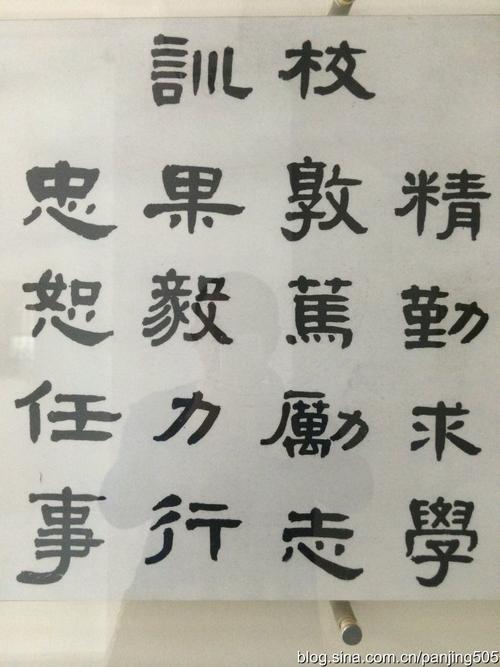 校訓
精勤求學
敦篤勵志
果毅力行
忠恕任事
blog.sina.com.cn/panjing505